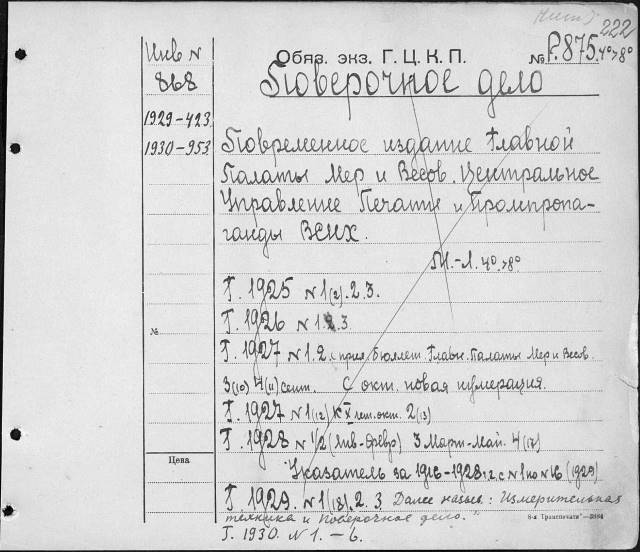 222
Инв N
868
Обяз. экз. Г. Ц. К. П.
№ Р.875. 4°>8°
Поверочное дело
1929-423
1930-953
Повременное издание Главной
Палаты Мер и Весов. Центральное
Управление Печати и Промпропа-
ганды ВСНХ.
М.-Л. 4°>8°
Г. 1925 N 1(2). 2. 3.
№
Г. 1926 N 1. 2. 3.
Г. 1927 N 1. 2. с прил. Бюллет. Главн. Палаты Мер и Весов.
3(10) 4(11) сент. С окт. новая нумерация.
Г. 1927 N 1(12) к X лет. окт. 2(13)
Г. 1928 N 1/2 (Янв-Февр) 3 Март-Май. 4(17)
Цена
Указатель за 1926-1928 г.г. с N 1 по N 16 (1929)
Г. 1929. N 1(18). 2. 3 Далее назыв.: "Измерительная
техника и поверочное дело."
8-я Транспечати"—3984
Г. 1930. N 1. — 6.